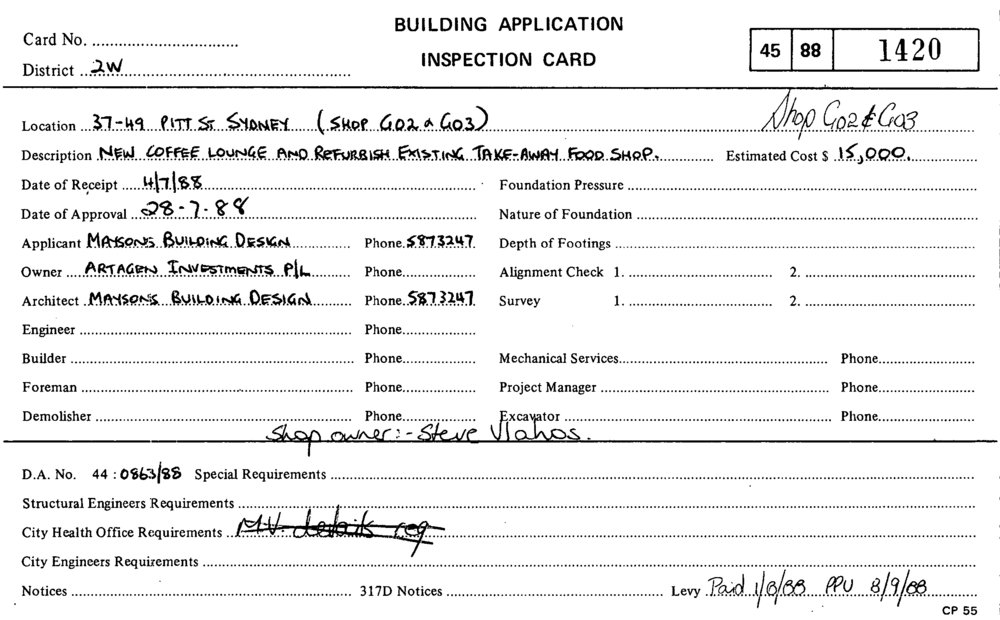 BUILDING APPLICATION
INSPECTION CARD
Card No.
District 2W
45 88 1420
Shop G02 & G03
Location 37-49 PITT ST SYDNEY (SHOP G02 & G03)
Description NEW COFFEE LOUNGE AND REFURBISH EXISTING TAKE-AWAY FOOD SHOP. Estimated Cost $ 15,000.
Date of Receipt 4/7/88 Foundation Pressure
Date of Approval 28-7-88 Nature of Foundation
Applicant MAYSONS BUILDING DESIGN Phone 5873247 Depth of Footings
Owner ARTAGEN INVESTMENTS P/L Phone Alignment Check 1. 2.
Architect MAYSONS BUILDING DESIGN Phone 5873247 Survey 1. 2.
Engineer Phone
Builder Phone Mechanical Services Phone
Foreman Phone Project Manager Phone
Demolisher Phone Excavator Phone
Shop owner:- Steve Vlahos.
D.A. No. 44 : 0863/88 Special Requirements
Structural Engineers Requirements
City Health Office Requirements M.V. details req
City Engineers Requirements
Notices 317D Notices Levy Paid 1/8/88 PPU 8/9/88
CP 55